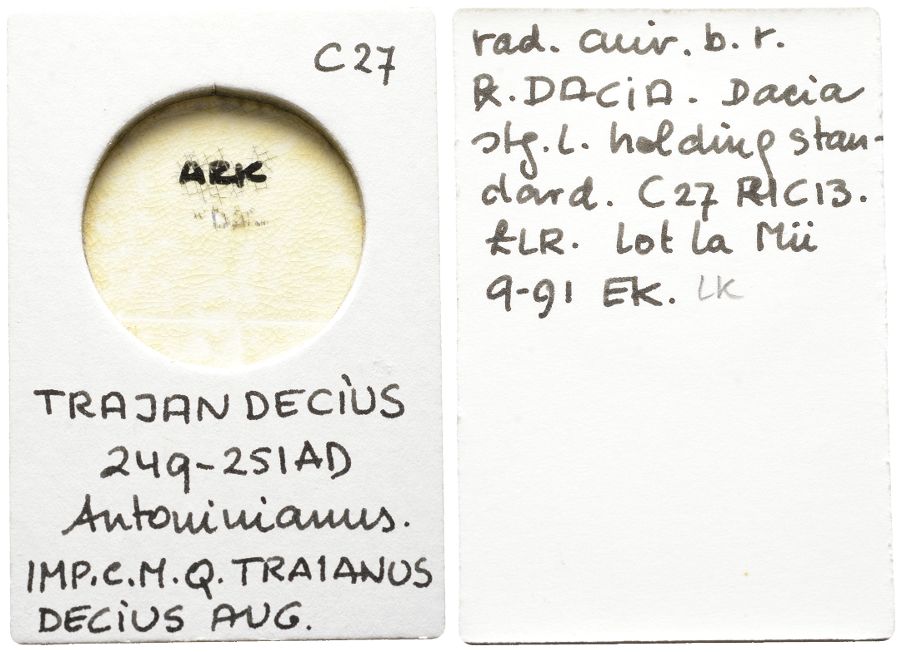 C27
ARK
TRAJAN DECIUS
249-251AD
Antoninianus.
IMP.C.M.Q. TRAIANUS
DECIUS AUG.
rad. cuir. b. r.
R. DACIA. Dacia
stg. l. holding stan-
dard. C27 RIC13.
Lot La Mü
9-91 EK. LK